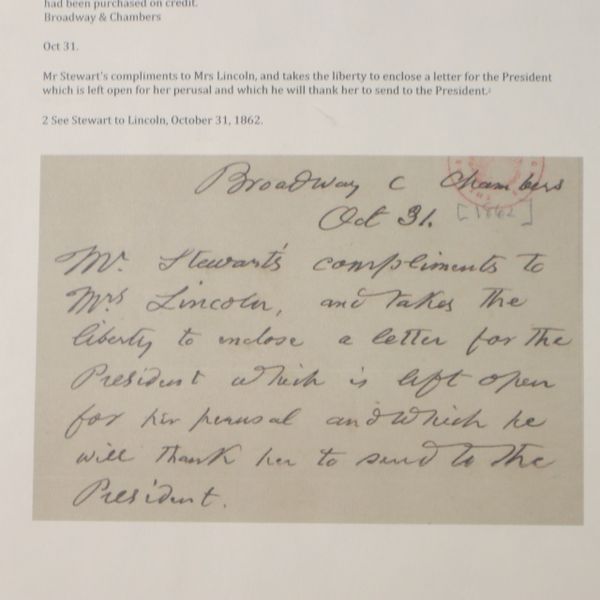 had been purchased on credit.
Broadway & Chambers
Oct 31.
Mr Stewart's compliments to Mrs Lincoln, and takes the liberty to enclose a letter for the President
which is left open for her perusal and which he will thank her to send to the President.²
2 See Stewart to Lincoln, October 31, 1862.
Broadway C Chambers
Oct 31. [1862]
Mr. Stewart's compliments to
Mrs Lincoln, and takes the
liberty to enclose a letter for the
President which is left open
for her perusal and which he
will thank her to send to the
President.